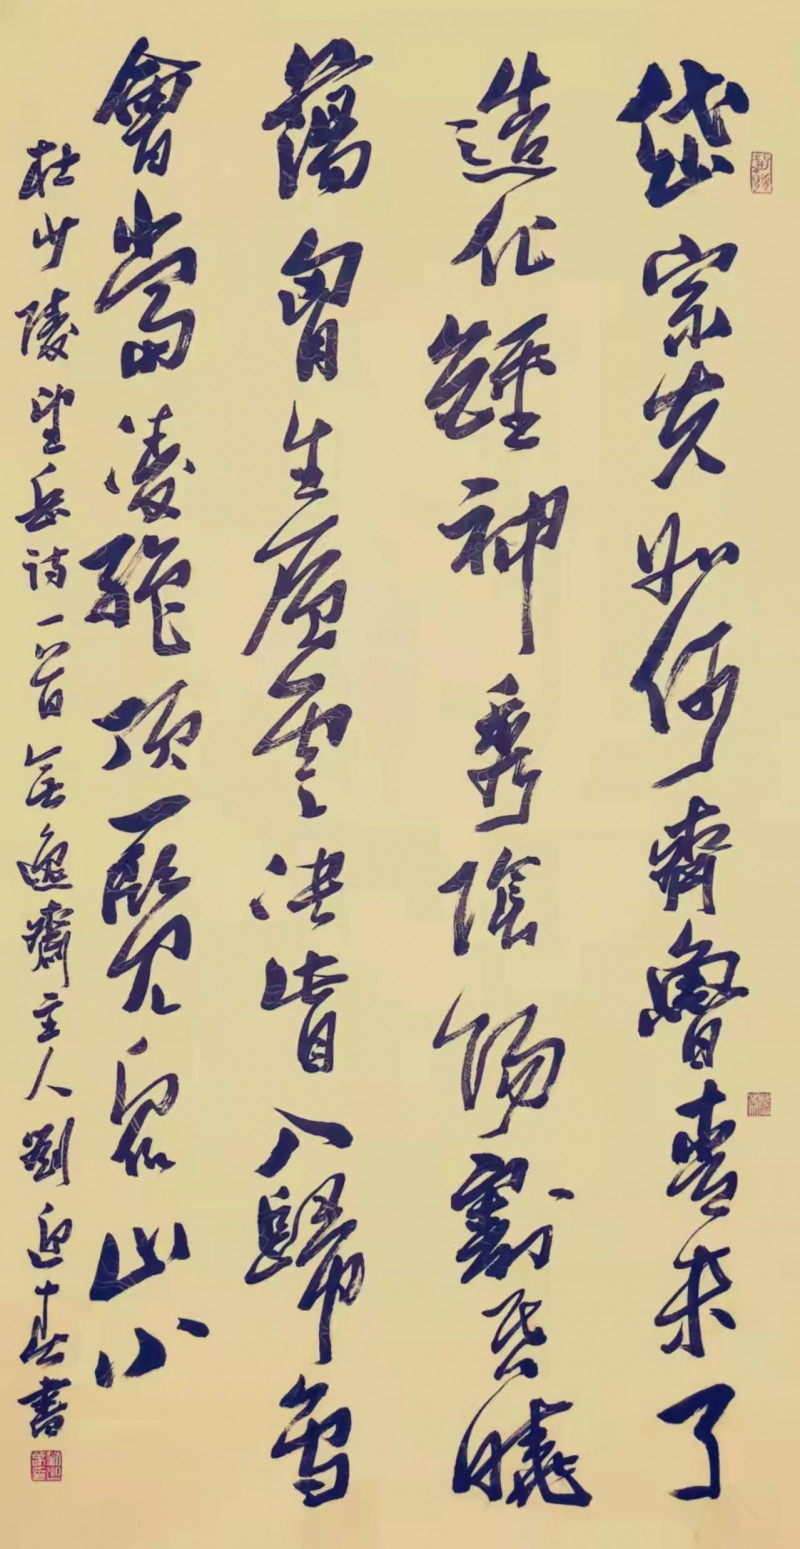 岱宗夫如何齊魯青未了
造化鍾神秀陰陽割昏曉
蕩胷生層雲決眥入歸鳥
會當凌絕頂一覽眾山小
杜少陵望岳诗一首 無逸齋主人劉迎春書